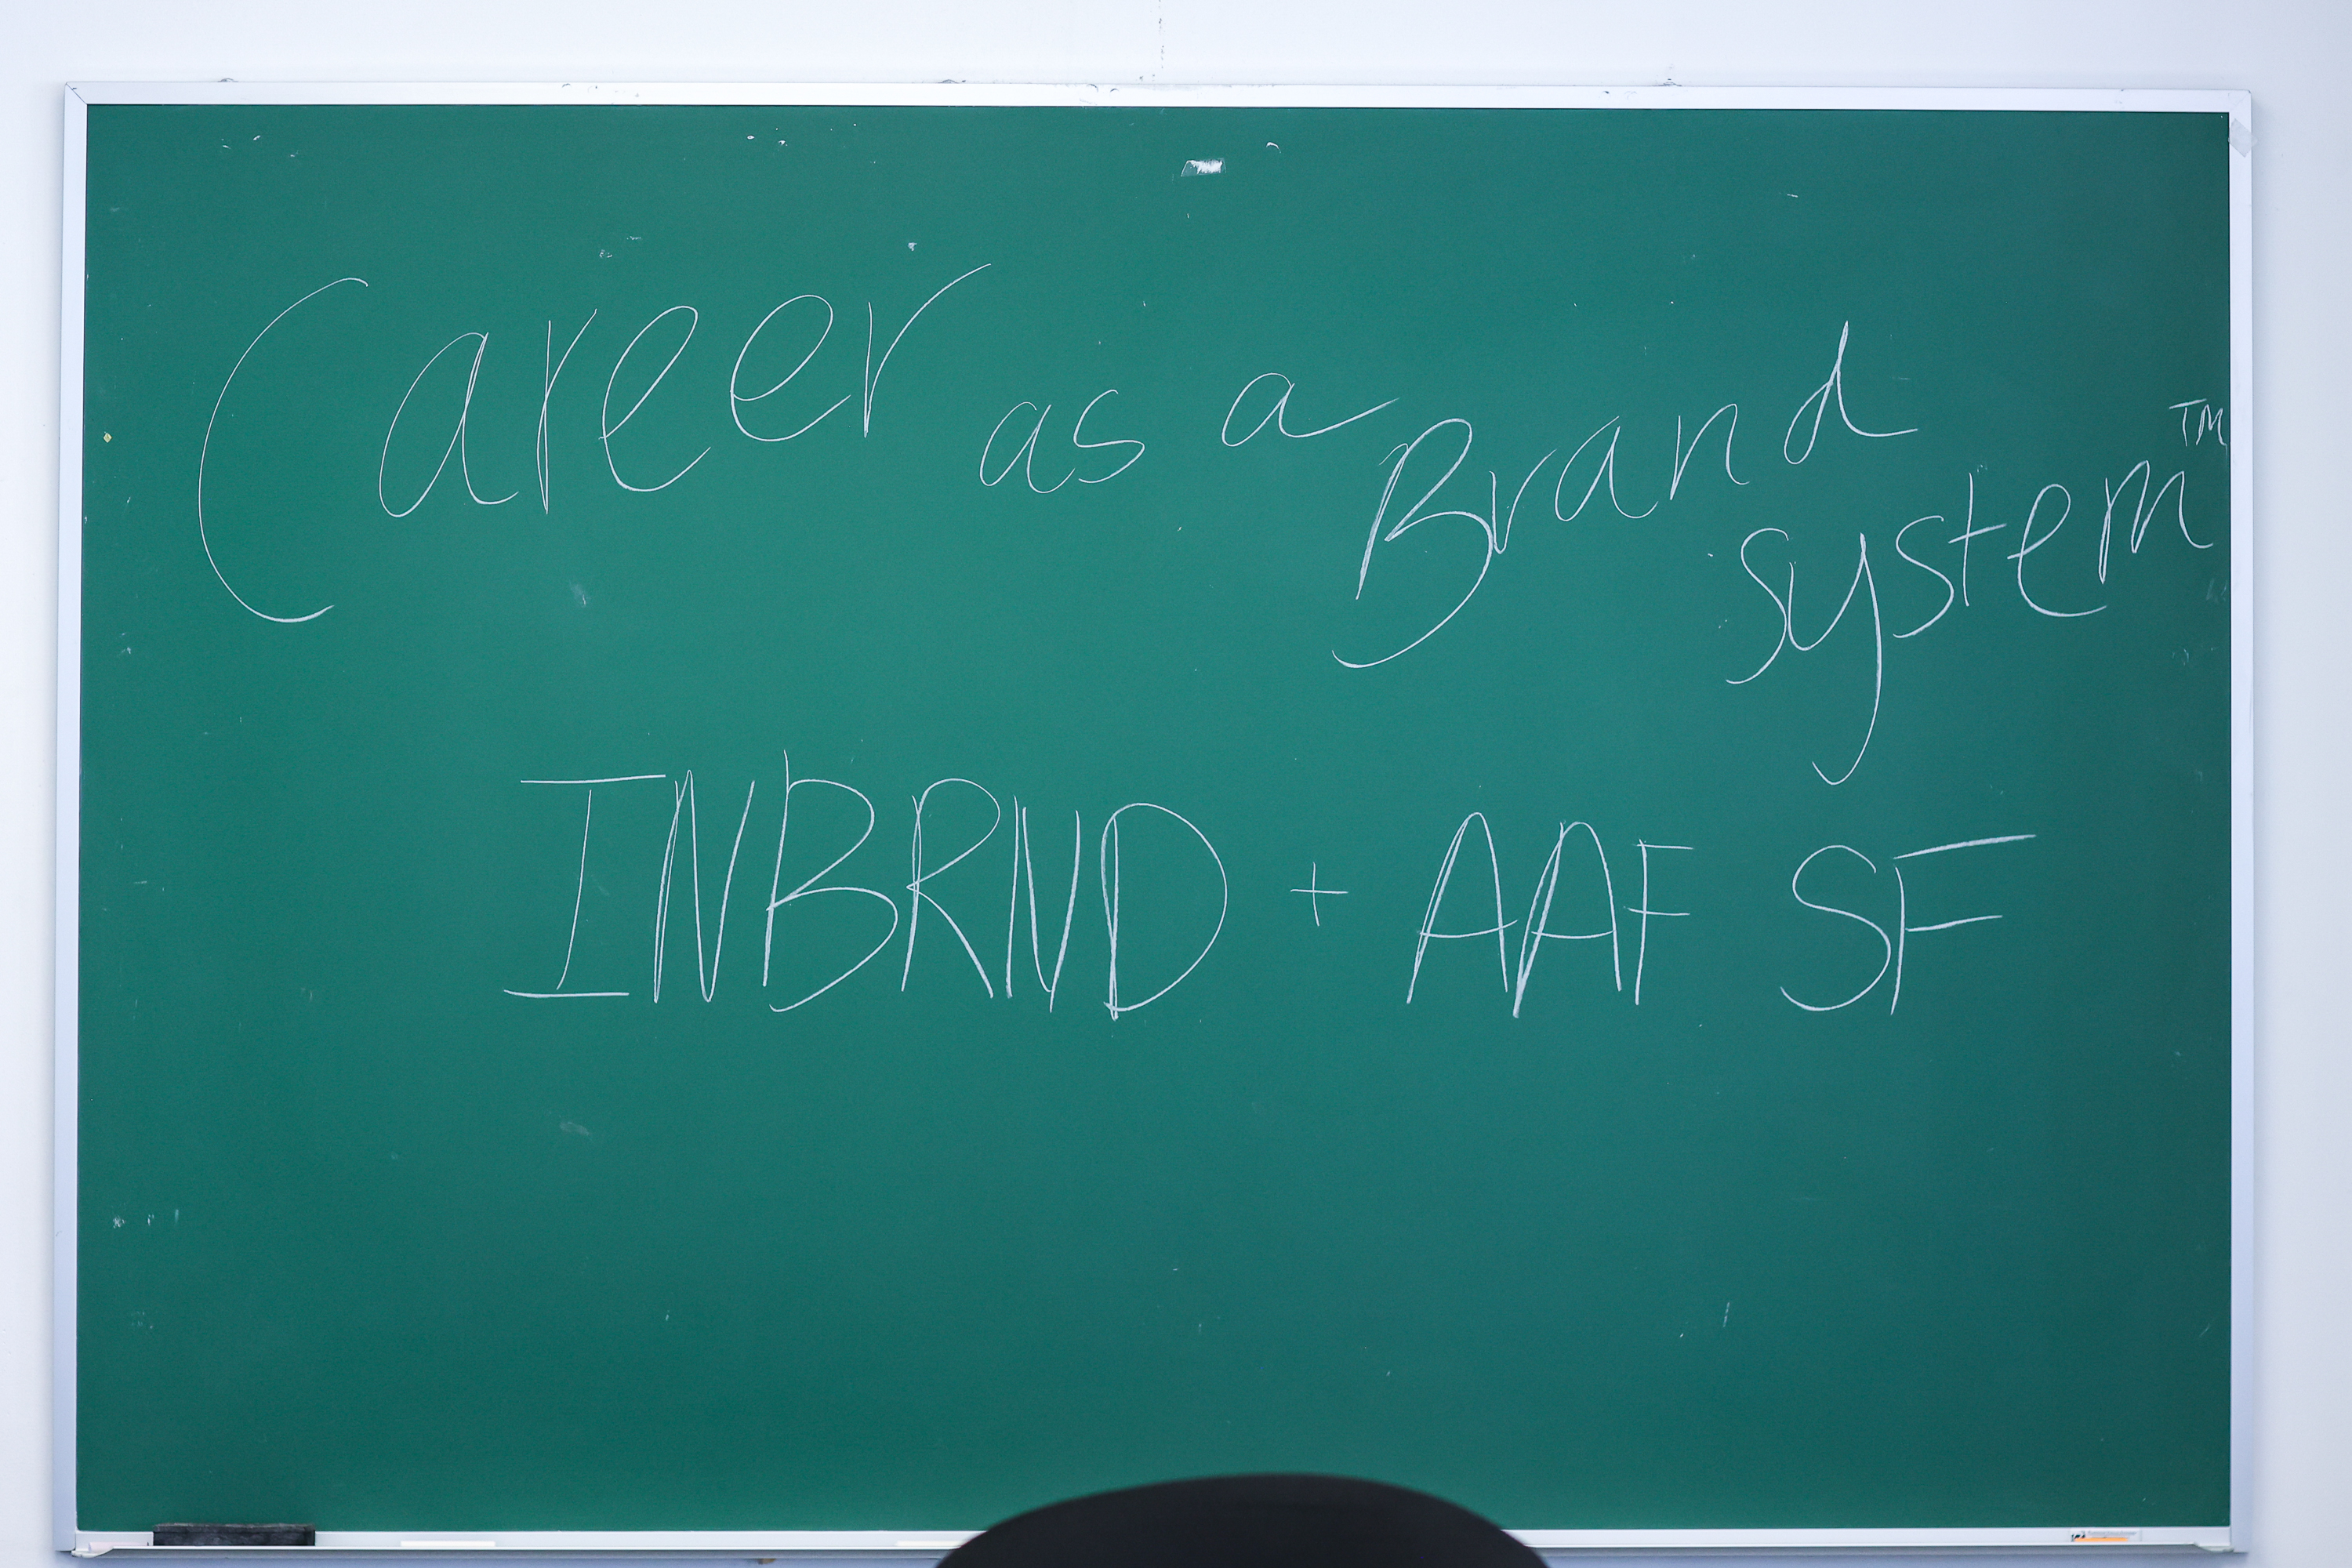 Career as a Brand
system™
INBRND + AAF SF